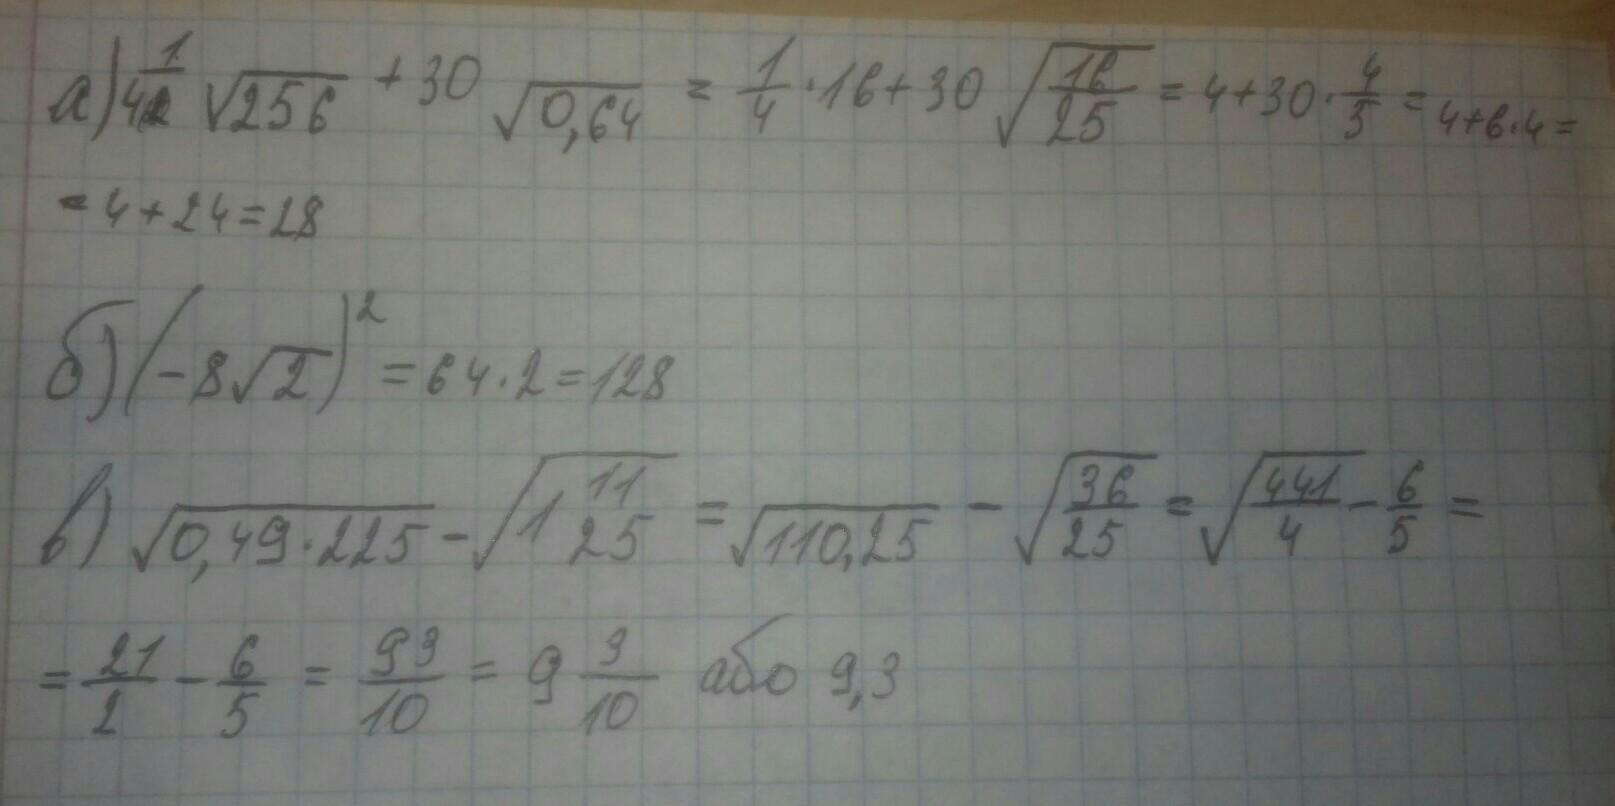 а) 1/4 √256 + 30 √0,64 = 1/4 · 16 + 30 √(16/25) = 4 + 30 · 4/5 = 4 + 6 · 4 =
= 4 + 24 = 28
б) (-8√2)² = 64 · 2 = 128
в) √(0,49 · 225) - √(1 11/25) = √110,25 - √(36/25) = √(441/4) - 6/5 =
= 21/2 - 6/5 = 93/10 = 9 3/10 або 9,3